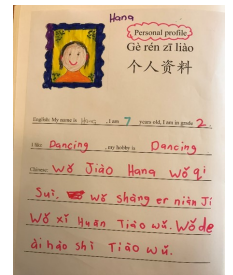 Hana
Personal profile
Gè rén zī liào
个人资料
English: My name is Hana, I am 7 years old, I am in grade 2.
I like Dancing, my hobby is Dancing
Chinese: Wǒ Jiào Hana Wǒ qi
Suì. Wǒ shàng er nián Ji
Wǒ xǐ Huān Tiào wǔ. Wǒde
ài hào shì Tiào wǔ.